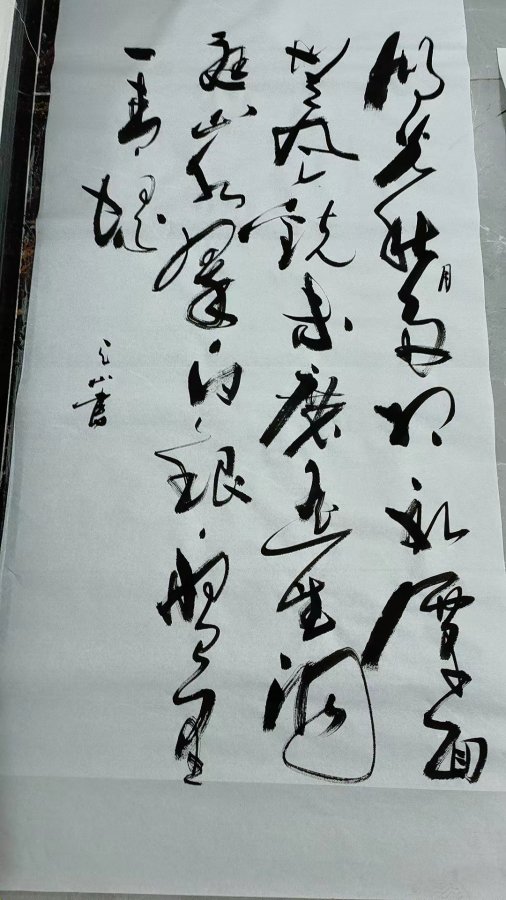 湖光秋月两相和潭面
無风镜未磨遥望洞
庭山水翠白银盘里
一青螺
山書